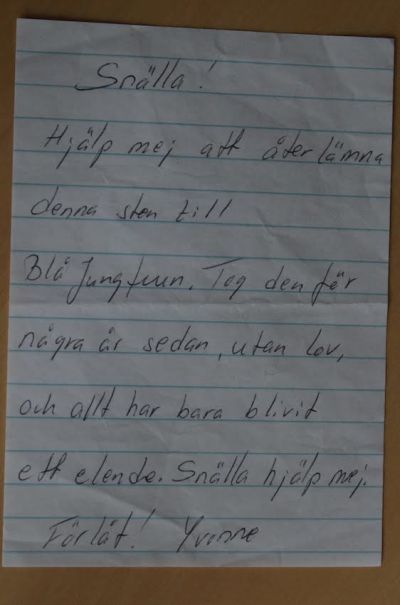 Snälla!
Hjälp mej att återlämna
denna sten till
Blå Jungfrun. Tog den för
några år sedan, utan lov,
och allt har bara blivit
ett elende. Snälla hjälp mej.
Förlåt! Yvonne